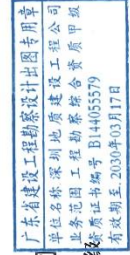 广东省建设工程勘察设计出图专用章
单位名称深圳地质建设工程公司
业务范围 工程勘察综合资质甲级
资质证书编号 B144055579
有效期至:2030年03月17日